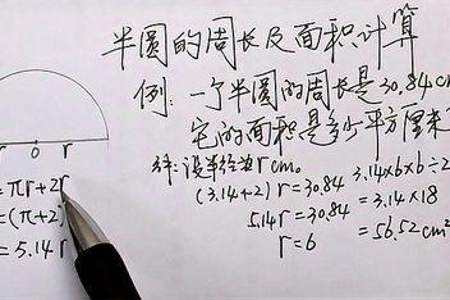 半圆的周长及面积计算
例: 一个半圆的周长是30.84cm
它的面积是多少平方厘米
r o r
=πr+2r
=(π+2)
=5.14r
解:设半径为rcm。
(3.14+2) r=30.84
5.14r=30.84
r=6
3.14×6×6÷2
=3.14×18
=56.52cm²